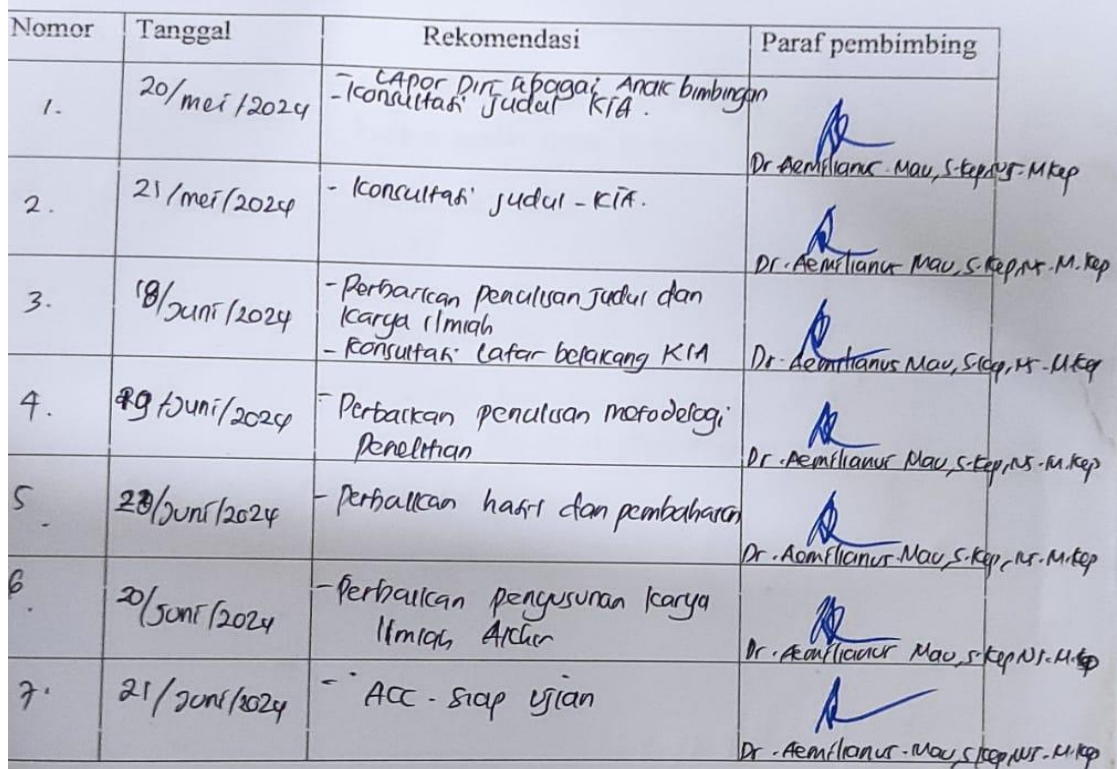 Nomor Tanggal Rekomendasi Paraf pembimbing
1. 20/mei/2024 - Lapor Diri sebagai Anak bimbingan
- Konsultasi judul KIA.
Dr Aemilianus Mau, S.Kep,Ns-MKep
2. 21/mei/2024 - Konsultasi judul - KIA.
Dr. Aemilianus Mau, S.Kep,Ns.M.Kep
3. 18/Juni/2024 - Perbaikan penulisan judul dan
Karya Ilmiah
- Konsultasi Latar belakang KIA
Dr. Aemilianus Mau, S.Kep,Ns-M.Kep
4. 19/Juni/2024 - Perbaikan penulisan metodelogi
Penelitian
Dr. Aemilianus Mau, S.Kep,Ns.M.Kep
5. /Juni/2024 - Perbaikan hasil dan pembahasan
Dr. Aemilianus Mau, S.Kep,Ns.M.Kep
6. 20/Juni/2024 - Perbaikan penyusunan Karya
Ilmiah Akhir
Dr. Aemilianus Mau, S.Kep Ns.M.Kep
7. 21/Juni/2024 - ACC - siap Ujian
Dr. Aemilianus Mau, S.Kep,Ns.M.Kep